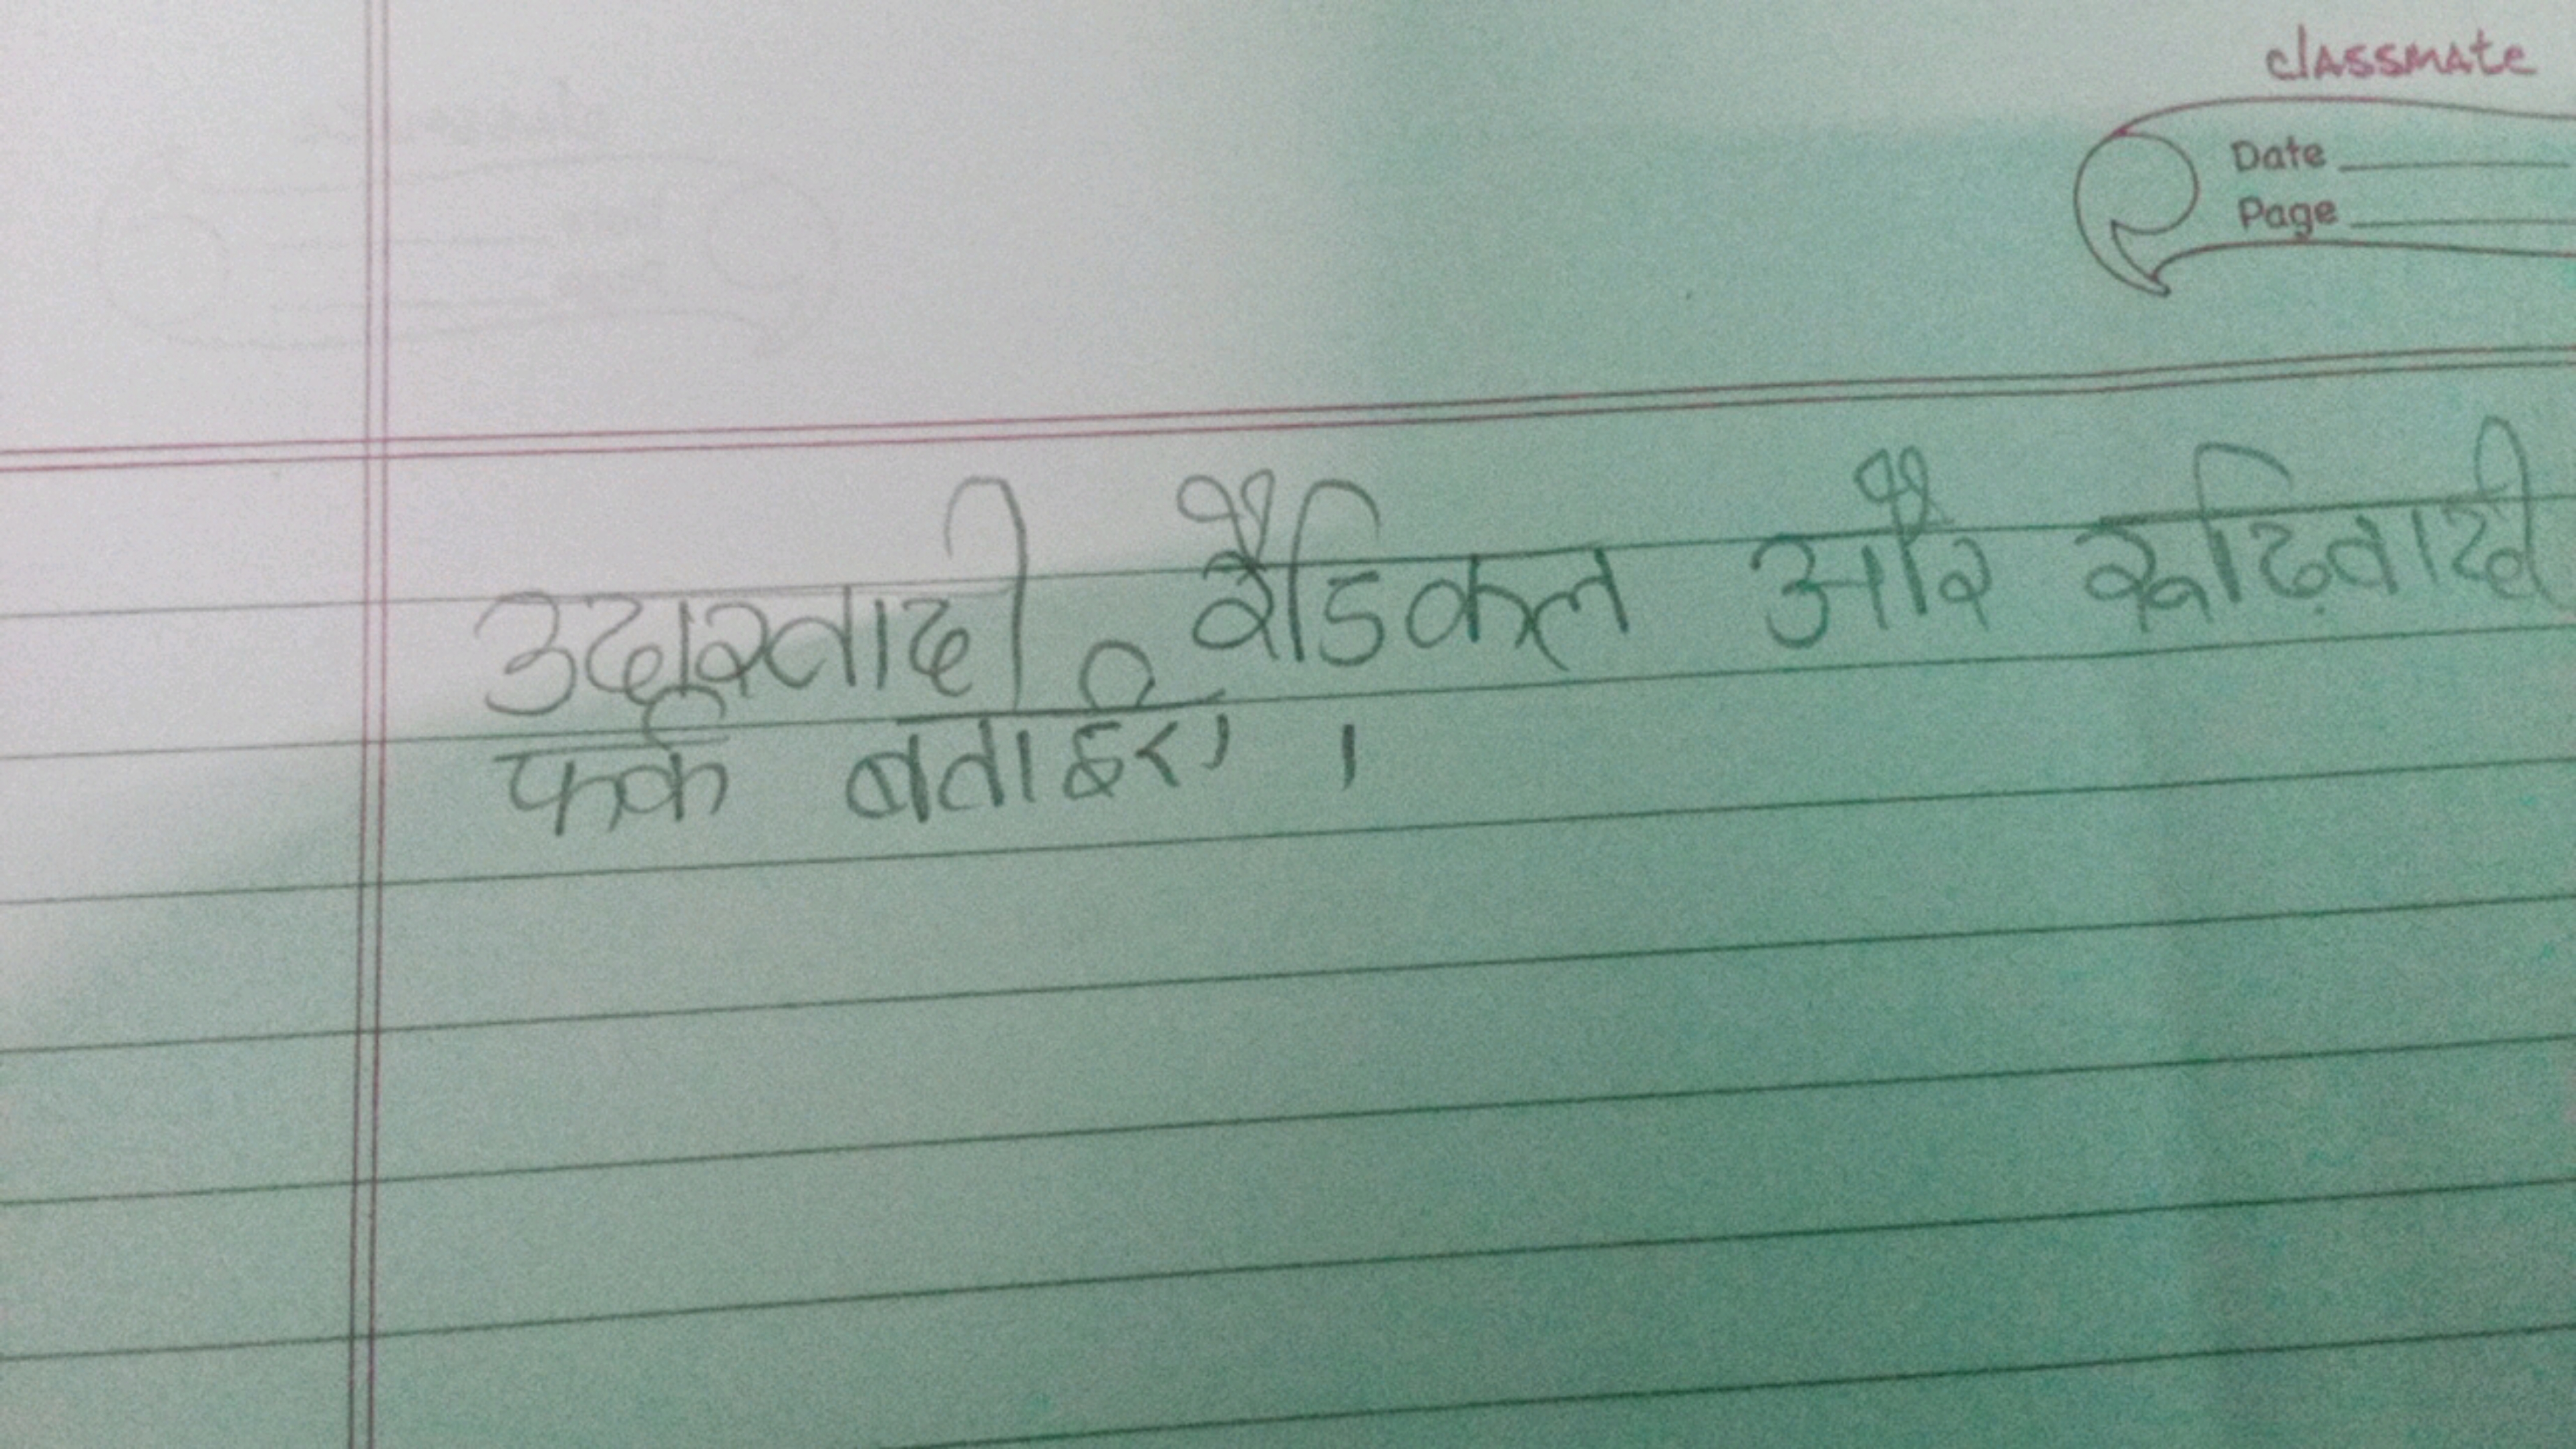 classmate
Date
Page
उदारवादी रैडिकल और रूढ़िवादी
फर्क बताइए ।